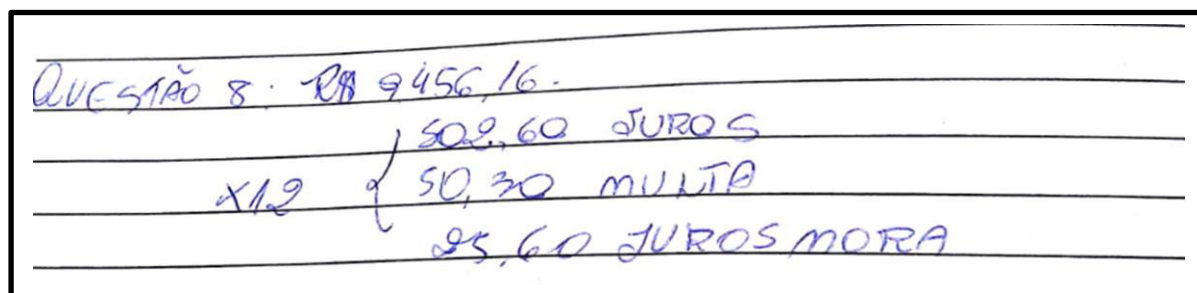 QUESTÃO 8: R$ 9456,16.
502,60 JUROS
x12 { 50,30 MULTA
25,60 JUROS MORA